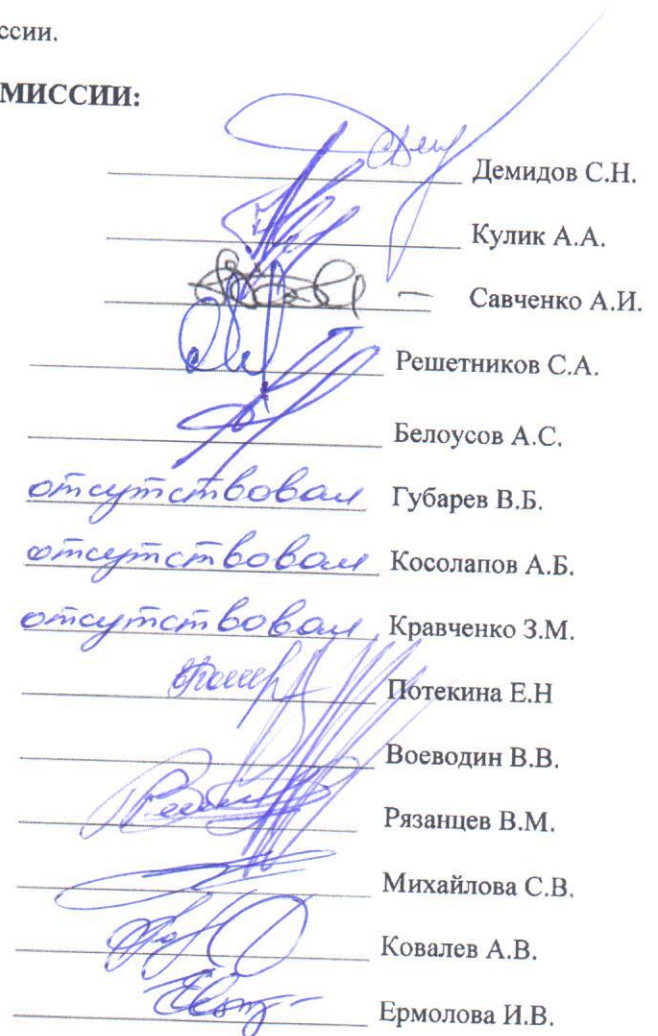 ссии.
МИССИИ:
Демидов С.Н.
Кулик А.А.
Савченко А.И.
Решетников С.А.
Белоусов А.С.
отсутствовал Губарев В.Б.
отсутствовал Косолапов А.Б.
отсутствовал Кравченко З.М.
Потекина Е.Н
Воеводин В.В.
Рязанцев В.М.
Михайлова С.В.
Ковалев А.В.
Ермолова И.В.